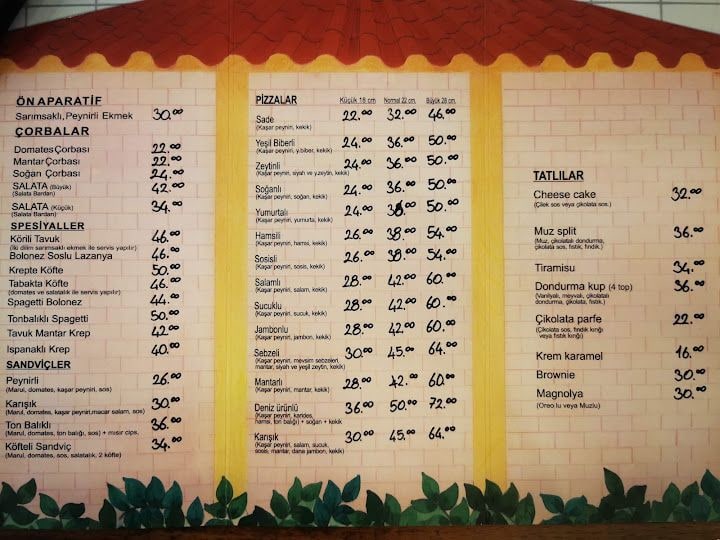 ÖN APARATİF
Sarımsaklı, Peynirli Ekmek 30.00
ÇORBALAR
Domates Çorbası 22.00
Mantar Çorbası 22.00
Soğan Çorbası 24.00
SALATA (Büyük) 42.00
(Salata Bardan)
SALATA (Küçük) 34.00
(Salata Bardan)
SPESİYALLER
Körili Tavuk 46.00
(İki dilim sarımsaklı ekmek ile servis yapılır)
Bolonez Soslu Lazanya 46.00
Krepte Köfte 50.00
Tabakta Köfte 46.00
(domates ve salatalık ile servis yapılır)
Spagetti Bolonez 44.00
Tonbalıklı Spagetti 50.00
Tavuk Mantar Krep 42.00
Ispanaklı Krep 40.00
SANDVİÇLER
Peynirli 26.00
(Marul, domates, kaşar peyniri, sos)
Karışık 30.00
(Marul, domates, kaşar peyniri,macar salam, sos)
Ton Balıklı 36.00
(Marul, domates, ton balığı, sos) + mısır cips.
Köfteli Sandviç 34.00
(Marul, domates, sos, salatalık, 2 köfte)
PİZZALAR Küçük 18 cm. Normal 22 cm. Büyük 28 cm.
Sade 22.00 32.00 46.00
(Kaşar peyniri, kekik)
Yeşil Biberli 24.00 36.00 50.00
(Kaşar peyniri, y.biber, kekik)
Zeytinli 24.00 36.00 50.00
(Kaşar peyniri, siyah ve y.zeytin, kekik)
Soğanlı 24.00 36.00 50.00
(Kaşar peyniri, soğan, kekik)
Yumurtalı 24.00 50.00
(Kaşar peyniri, yumurta, kekik)
Hamsili 26.00 38.00 54.00
(Kaşar peyniri, hamsi, kekik)
Sosisli 26.00 38.00 54.00
(Kaşar peyniri, sosis, kekik)
Salamlı 28.00 42.00 60.00
(Kaşar peyniri, salam, kekik)
Sucuklu 28.00 42.00 60.00
(Kaşar peyniri, sucuk, kekik)
Jambonlu 28.00 42.00 60.00
(Kaşar peyniri, jambon, kekik)
Sebzeli 30.00 45.00 64.00
(Kaşar peyniri, mevsim sebzeleri,
mantar, siyah ve yeşil zeytin, kekik)
Mantarlı 28.00 42.00 60.00
(Kaşar peyniri, mantar, kekik)
Deniz ürünlü 36.00 50.00 72.00
(Kaşar peyniri, karides,
hamsi, ton balığı) + soğan + kekik
Karışık 30.00 45.00 64.00
(Kaşar peyniri, salam, sucuk,
sosis, mantar, dana jambon, kekik)
TATLILAR
Cheese cake 32.00
(Çilek sos veya çikolata sos.)
Muz split 36.00
(Muz, çikolatalı dondurma,
çikolatalı sos, fıstık, fındık.)
Tiramisu 34.00
Dondurma kup (4 top) 36.00
(Vanilyalı, meyvalı, çikolatalı
dondurma, çikolatalı sos, fıstık.)
Çikolata parfe 22.00
(Çikolata sos, fındık kırığı
veya fıstık kırığı)
Krem karamel 16.00
Brownie 30.00
Magnolya 30.00
(Oreo lu veya Muzlu)